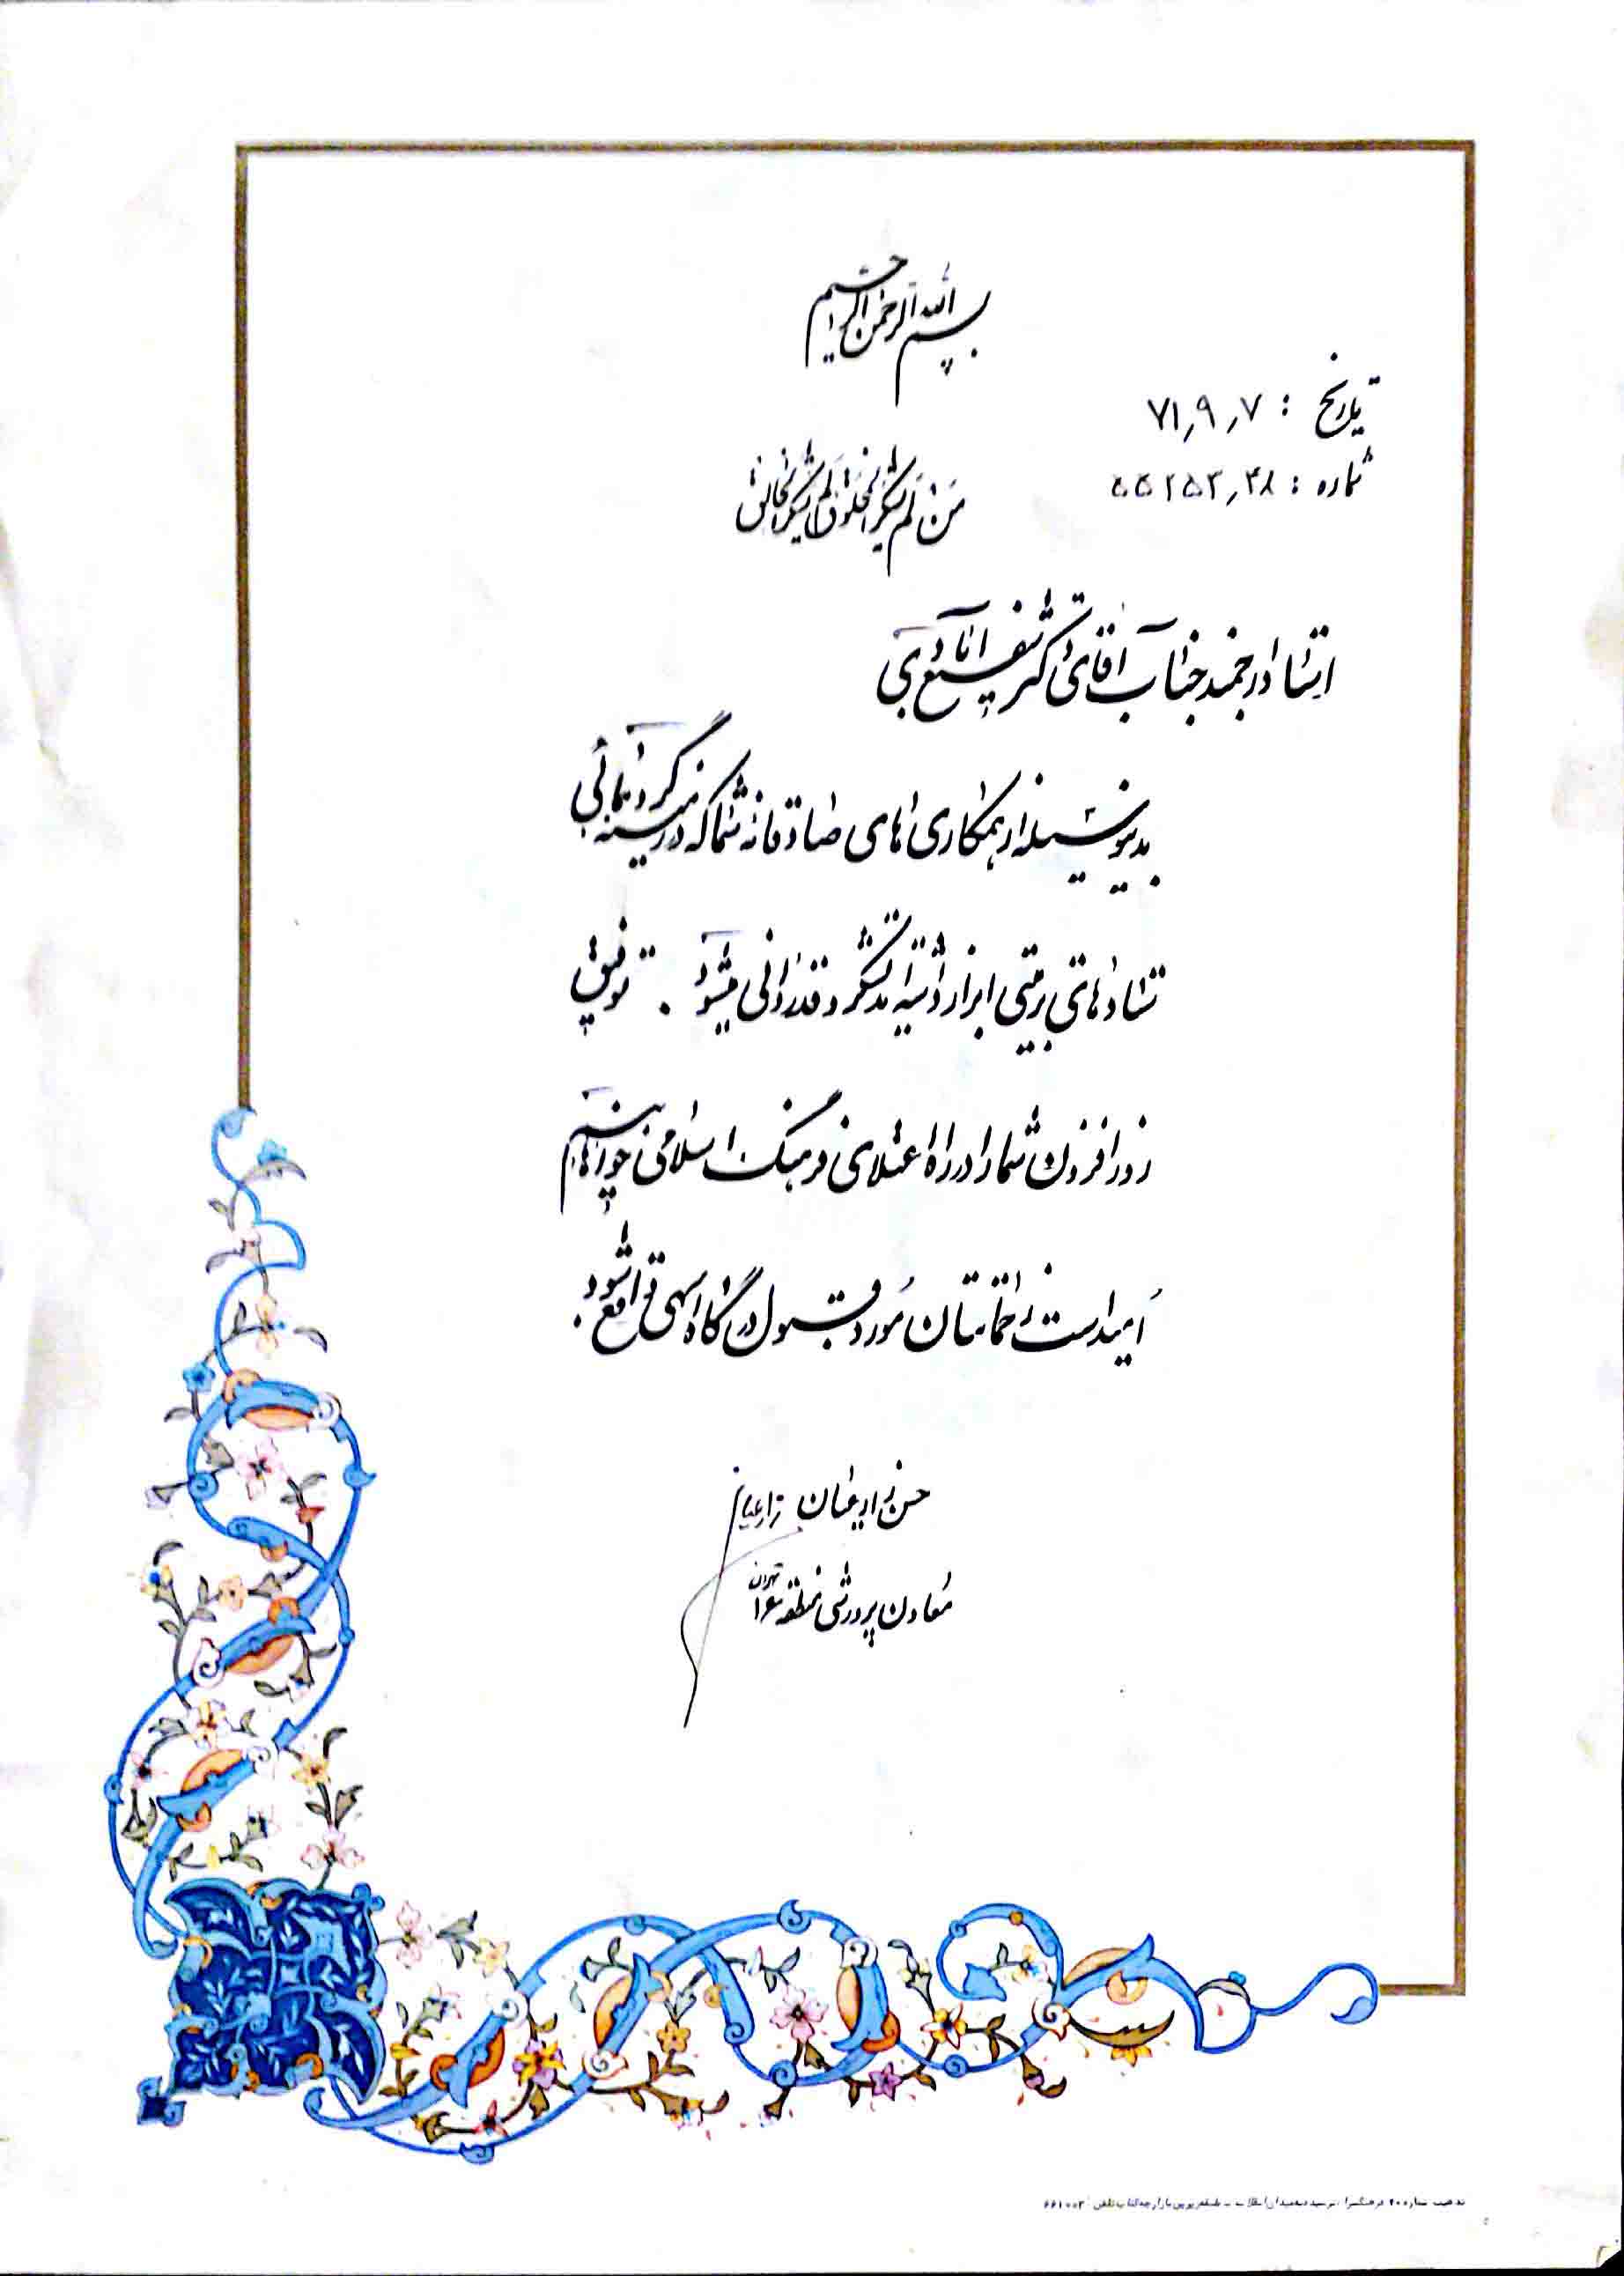 بسم الله الرحمن الرحیم
تاریخ : ۷۱٫۹٫۷
شماره : ۵۵۲۵۳٫۴۸
من لم یشکر المخلوق لم یشکر الخالق
استاد ارجمند جناب آقای دکتر شفیع آبادی
بدینوسیله از همکاری های صادقانه شما که در زمینه گردهمائی
ستادهای تربیتی ابراز داشته اید تشکر و قدردانی میشود . توفیق
روزافزون شما را در راه اعتلای فرهنگ اسلامی خواهانیم
امید است زحماتتان مورد قبول درگاه الهی واقع شود .
حسن زارعیان
معاون پرورشی منطقه ۱۶ تهران